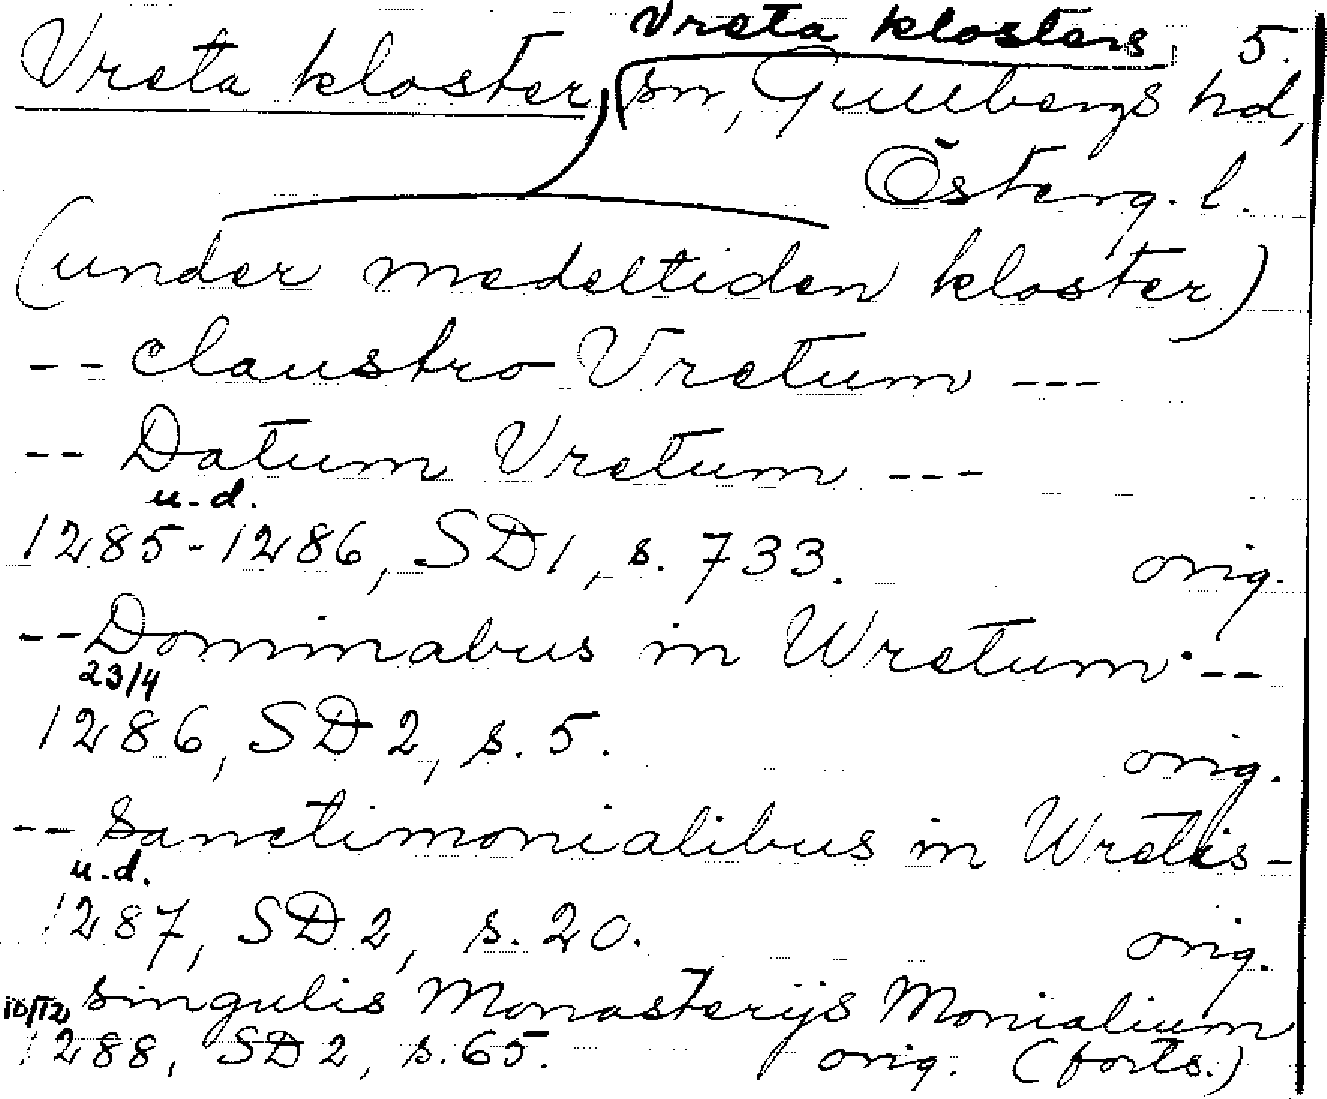 Vreta klosters 5.
Vreta kloster, sn, Gullbergs hd,
Österg. l.
(under medeltiden kloster)
-- claustro Vretum ---
-- Datum Vretum ---
u.d.
1285-1286, SD1, s. 733. orig.
-- Dominabus in Wretum --
23/4
1286, SD2, s. 5. orig.
-- Sanctimonialibus in Wretis -
u.d.
1287, SD2, s. 20. orig.
singulis Monasterijs Monialium
10/12
1288, SD2, s. 65. orig. (forts.)